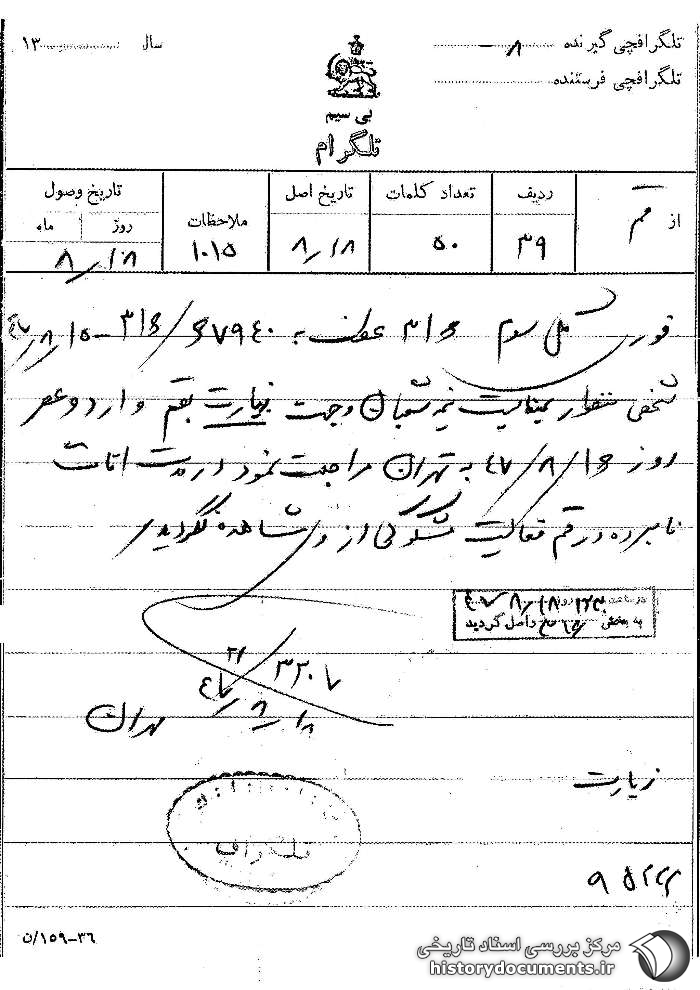 تلگرافچی گیرنده ۸
سال ۱۳
تلگرافچی فرستنده
بی سیم
تلگرام
از قم
ردیف
تعداد کلمات
تاریخ اصل
ملاحظات
تاریخ وصول
روز
ماه
۳۹
۵۰
۸/۱۸
۱۰۱۵
۸/۱۸
فوری مدیر کل سوم ۳۱۶ عطف به ۷۹۴۰
شخص منظور بمناسبت نیمه شعبان و جهت زیارت بقم وارد و عصر
روز ۴۷/۸/۱۶ به تهران مراجعت نمود در مدت اقامت
نامبرده در قم فعالیت مشکوکی از وی مشاهده نگردید
در ساعت
به بخش واصل گردید
تهران
زیارت
تلگراف
۳۶-۱۵۹/ن
مرکز بررسی اسناد تاریخی
historydocuments.ir